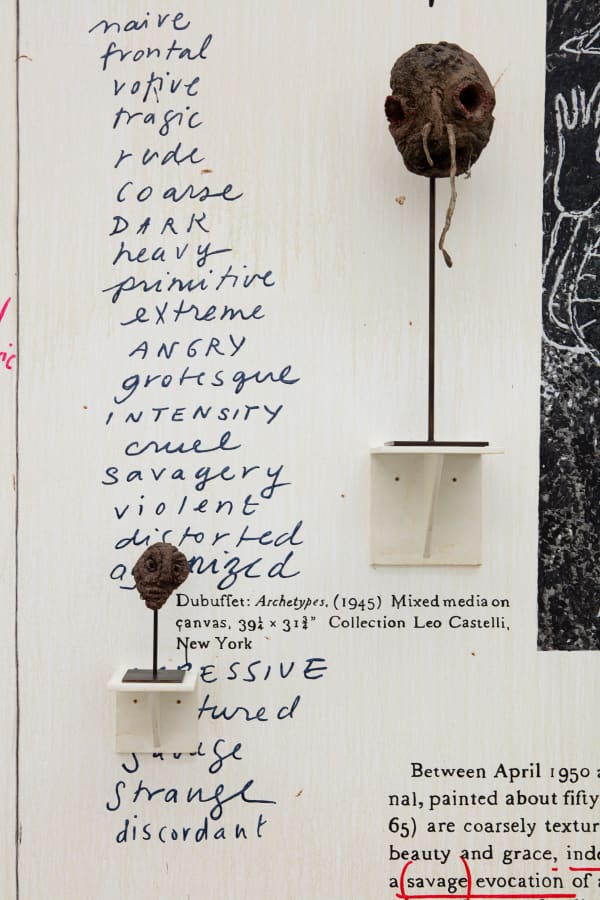 naive
frontal
votive
tragic
rude
coarse
DARK
heavy
primitive
extreme
ANGRY
grotesque
INTENSITY
cruel
savagery
violent
distorted
Dubuffet: Archetypes, (1945) Mixed media on
canvas, 39¼ × 31¾" Collection Leo Castelli,
New York
strange
discordant
Between April 1950
painted about fifty
65) are coarsely
beauty and grace,
a (savage) evocation of